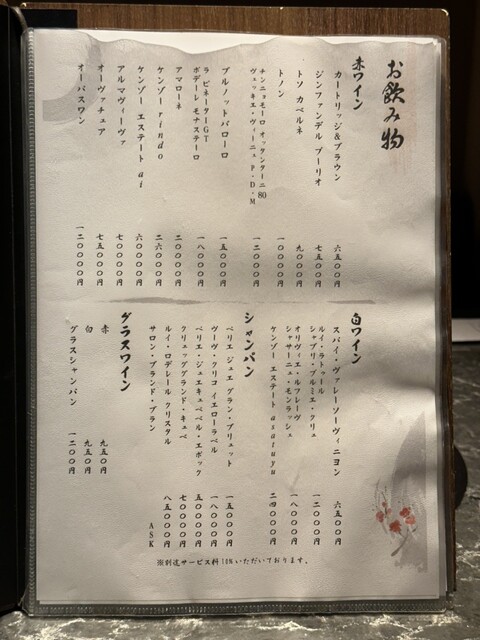 お飲み物
赤ワイン
カートリッジ&ブラウン 六五〇〇円
ジンファンデル プーリオ 七五〇〇円
トソ カベルネ 九〇〇〇円
トノン 一〇〇〇〇円
チンニョモーロ オッタンターニ 80
ヴェッキエ・ヴィーニュP・D・M 一二〇〇〇円
ブルノットバローロ 一五〇〇〇円
ラビネーターGT
ボデーレ モナステーロ 一八〇〇〇円
アマローネ 二〇〇〇〇円
ケンゾー rindo 二六〇〇〇円
ケンゾー エステート ai 六〇〇〇〇円
アルマヴィーヴァ 七〇〇〇〇円
オーヴァチュア 七五〇〇〇円
オーパスワン 一二〇〇〇〇円
白ワイン
スパイ・ヴァレーソーヴィニヨン 六五〇〇円
ルイ・ラトゥール
シャブリ・プルミエ・クリュ 一二〇〇〇円
オリヴィエ・ルフレーヴ
シャサーニュ・モンラッシェ 一八〇〇〇円
ケンゾー エステート asatuyu 二四〇〇〇円
シャンパン
ペリエ ジュエ グラン・ブリュット 一五〇〇〇円
ヴーヴ・クリコ イエローラベル 一八〇〇〇円
ペリエ・ジュエキュベベル・エポック 五〇〇〇〇円
クリュッググランド・キュベ 七〇〇〇〇円
ルイ・ロデレール クリスタル 八五〇〇〇円
サロン・ブランド・ブラン ASK
グラスワイン
赤 九五〇円
白 九五〇円
グラスシャンパン 一二〇〇円
※別途サービス料10%いただいております。